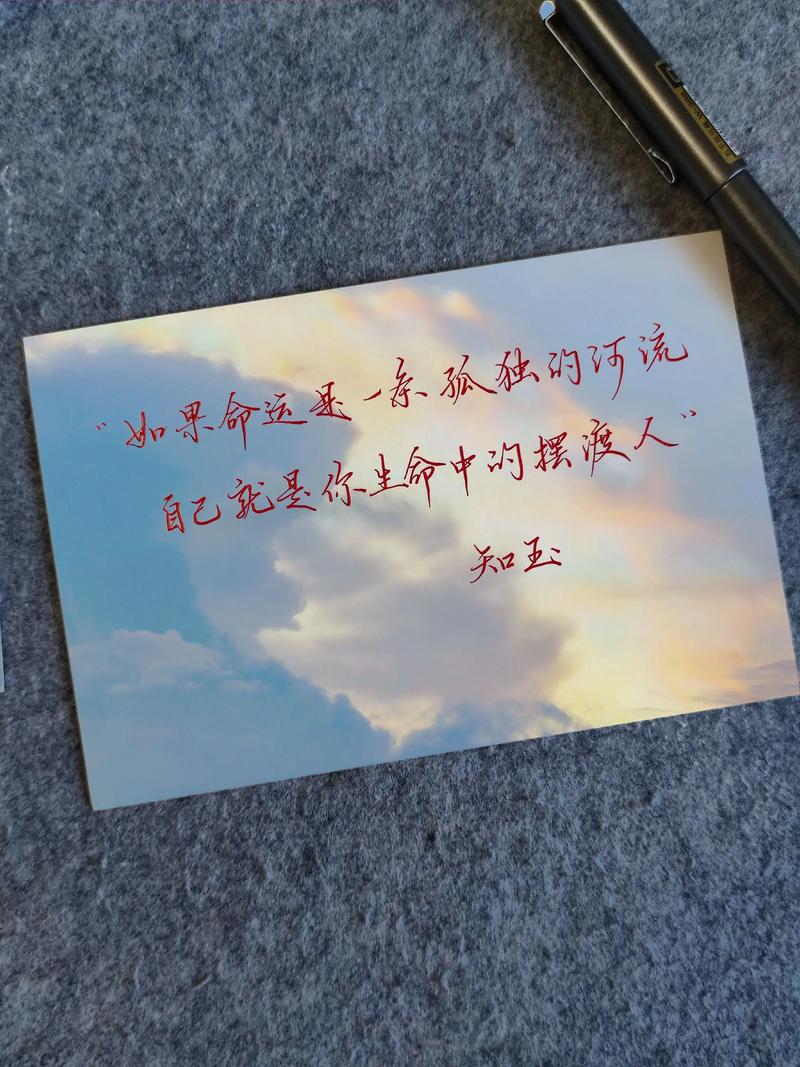 “如果命运是一条孤独的河流
自己就是你生命中的摆渡人”
知玉